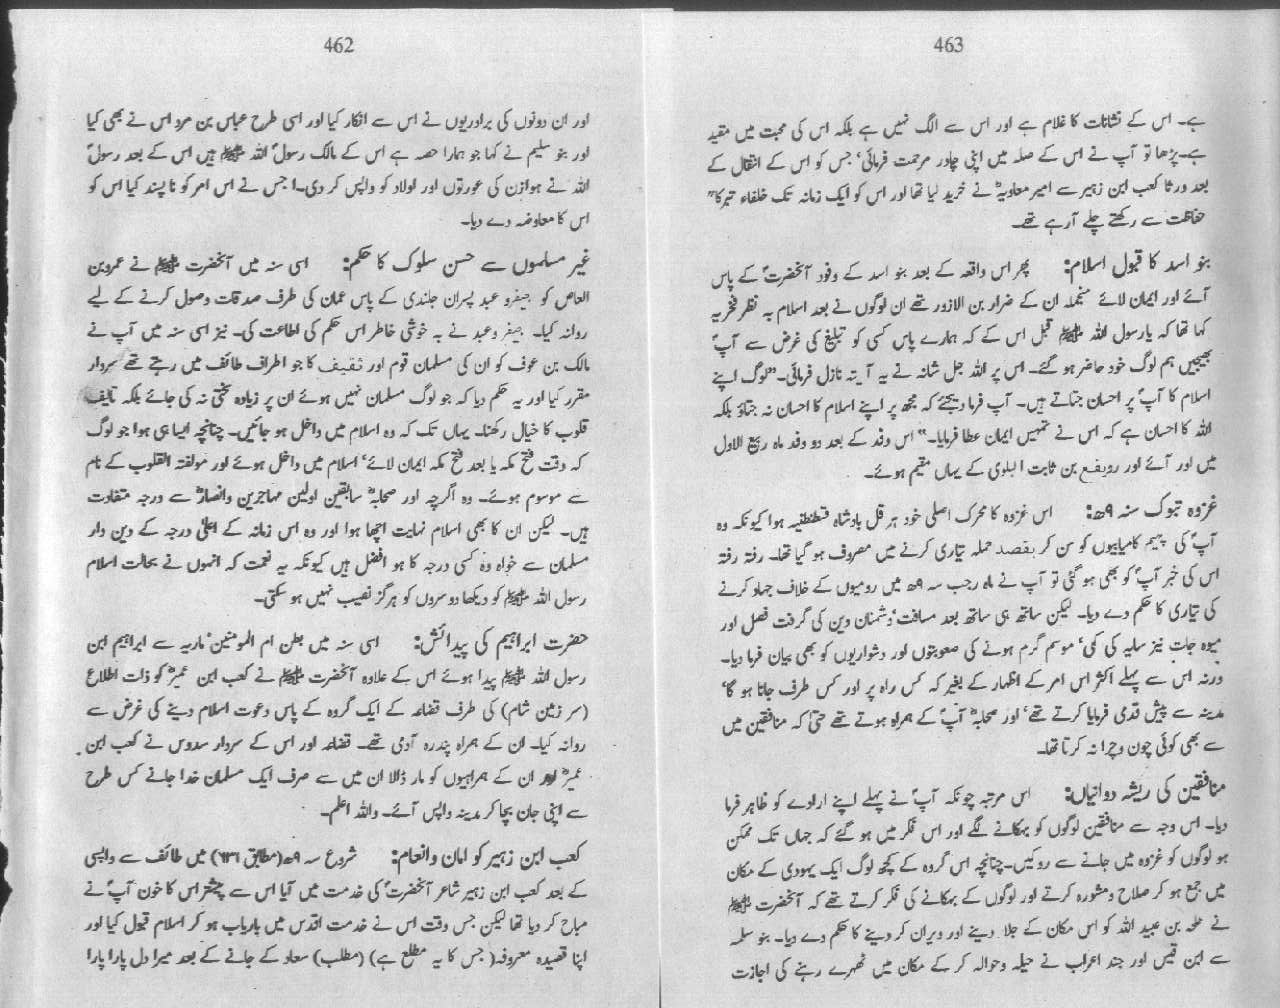 462
اور ان دونوں کی برادریوں نے اس سے انکار کیا اور اسی طرح عباس بن مرداس نے بھی کیا
اور بنو سلیم نے کہا جو ہمارا حصہ ہے اس کے مالک رسولؐ اللہ ﷺ ہیں اس کے بعد رسولؐ
اللہ نے ہوازن کی عورتوں اور اولاد کو واپس کر دی۔ا جس نے اس امر کو ناپسند کیا اس کو
اس کا معاوضہ دے دیا۔
غیر مسلموں سے حسن سلوک کا حکم: اسی سنہ میں آنحضرت ﷺ نے عمروبن
العاص کو جیفرو عبد پسران جلندی کے پاس عمان کی طرف صدقات وصول کرنے کے لیے
روانہ کیا۔ جیفر وعبد نے بہ خوشی خاطر اس حکم کی اطاعت کی۔ نیز اسی سنہ میں آپ نے
مالک بن عوف کو ان کی مسلمان قوم اور ثقیف کا جو اطراف طائف میں رہتے تھے سردار
مقرر کیا اور یہ حکم دیا کہ جو لوگ مسلمان نہیں ہوئے ان پر زیادہ سختی نہ کی جائے بلکہ تالیف
قلوب کا خیال رکھنا۔ یہاں تک کہ وہ اسلام میں داخل ہو جائیں۔ چنانچہ ایسا ہی ہوا جو لوگ
کہ وقت فتح مکہ یا بعد فتح مکہ ایمان لائے‘ اسلام میں داخل ہوئے اور مولفتہ القلوب کے نام
سے موسوم ہوئے۔ وہ اگرچہ اور صحابہؓ سابقین اولین مہاجرین وانصارؓ سے درجہ متفاوت
ہیں۔ لیکن ان کا بھی اسلام نہایت اچھا ہوا اور وہ اس زمانہ کے اعلیٰ درجہ کے دین دار
مسلمان سے خواہ وہ کسی درجہ کا ہو افضل ہیں کیونکہ یہ نعمت کہ انہوں نے بحالت اسلام
رسول اللہ ﷺ کو دیکھا دوسروں کو ہرگز نصیب نہیں ہو سکتی۔
حضرت ابراہیم کی پیدائش: اسی سنہ میں بطن ام المومنین ماریہ سے ابراہیم ابن
رسول اللہ ﷺ پیدا ہوئے اس کے علاوہ آنحضرت ﷺ نے کعب ابن عمیرؓ کو ذات اطلاع
(سر زمین شام) کی طرف قضاعہ کے ایک گروہ کے پاس دعوت اسلام دینے کی غرض سے
روانہ کیا۔ ان کے ہمراہ پندرہ آدمی تھے۔ قضاعہ اور اس کے سردار سدوس نے کعب ابن
عمیرؓ اور ان کے ہمراہیوں کو مار ڈالا ان میں سے صرف ایک مسلمان خدا جانے کس طرح
سے اپنی جان بچا کر مدینہ واپس آئے۔ واللہ اعلم۔
کعب ابن زہیر کو امان وانعام: شروع سہ ۹ھ(مطابق ۶۳۱ء) میں طائف سے واپسی
کے بعد کعب ابن زہیر شاعر آنحضرتؐ کی خدمت میں آیا اس سے پیشتر اس کا خون آپؐ نے
مباح کر دیا تھا لیکن جس وقت اس نے خدمت اقدس میں باریاب ہو کر اسلام قبول کیا اور
اپنا قصیدہ معروفہ( جس کا یہ مطلع ہے) (مطلب) سعاد کے جانے کے بعد میرا دل پارا پارا
463
ہے۔ اس کے نشانات کا غلام ہے اور اس سے الگ نہیں ہے بلکہ اس کی محبت میں مقید
ہے۔پڑھا تو آپ نے اس کے صلہ میں اپنی چادر مرحمت فرمائی‘ جس کو اس کے انتقال کے
بعد ورثا کعب ابن زہیر سے امیر معاویہؓ نے خرید لیا تھا اور اس کو ایک زمانہ تک خلفاء تبرکا"
حفاظت سے رکھتے چلے آرہے تھے۔
بنو اسد کا قبول اسلام: پھر اس واقعہ کے بعد بنو اسد کے وفود آنحضرتؐ کے پاس
آئے اور ایمان لائے منجملہ ان کے ضرار بن الازور تھے ان لوگوں نے بعد اسلام بہ نظر فخریہ
کہا تھا کہ یارسول اللہ ﷺ قبل اس کے کہ ہمارے پاس کسی کو تبلیغ کی غرض سے آپؐ
بھیجیں ہم لوگ خود حاضر ہو گئے۔ اس پر اللہ جل شانہ نے یہ آیتہ نازل فرمائی۔"لوگ اپنے
اسلام کا آپؐ پر احسان جتاتے ہیں۔ آپ فرما دیجئے کہ مجھ پر اپنے اسلام کا احسان نہ جتاؤ بلکہ
اللہ کا احسان ہے کہ اس نے تمہیں ایمان عطا فرمایا۔" اس وفد کے بعد دو وفد ماہ ربیع الاول
میں اور آئے اور رویفع بن ثابت البلوی کے یہاں مقیم ہوئے۔
غزوہ تبوک سنہ ۹ھ: اس غزوہ کا محرک اصلی خود ہرقل بادشاہ قسطنطنیہ ہوا کیونکہ وہ
آپؐ کی پیہم کامیابیوں کو سن کر بقصد حملہ تیاری کرنے میں مصروف ہو گیا تھا۔ رفتہ رفتہ
اس کی خبر آپؐ کو بھی ہو گئی تو آپ نے ماہ رجب سہ ۹ھ میں رومیوں کے خلاف جہاد کرنے
کی تیاری کا حکم دے دیا۔ لیکن ساتھ ہی ساتھ بعد مسافت‘ دشمنان دین کی گرفت فصل اور
میوہ جات نیز سایہ کی کمی‘ موسم گرم ہونے کی صعوبتوں اور دشواریوں کو بھی بیان فرما دیا۔
ورنہ اس سے پہلے اکثر اس امر کے اظہار کے بغیر کہ کس راہ پر اور کس طرف جانا ہو گا‘
مدینہ سے پیش قدمی فرمایا کرتے تھے‘ اور صحابہؓ آپؐ کے ہمراہ ہوتے تھے حتیٰ کہ منافقین میں
سے بھی کوئی چون وچرا نہ کرتا تھا۔
منافقین کی ریشہ دوانیاں: اس مرتبہ چونکہ آپؐ نے پہلے اپنے ارادے کو ظاہر فرما
دیا۔ اس وجہ سے منافقین لوگوں کو بہکانے لگے اور اس فکر میں ہو گئے کہ جہاں تک ممکن
ہو لوگوں کو غزوہ میں جانے سے روکیں۔چنانچہ اس گروہ کے کچھ لوگ ایک یہودی کے مکان
میں جمع ہو کر صلاح ومشورہ کرتے اور لوگوں کے بہکانے کی فکر کرتے تھے کہ آنحضرت ﷺ
نے طلحہ بن عبید اللہ کو اس مکان کے جلا دینے اور ویران کر دینے کا حکم دے دیا۔ بنو سلمہ
سے ابن قیس اور چند اعراب نے حیلہ وحوالہ کر کے مکان میں ٹھہرے رہنے کی اجازت